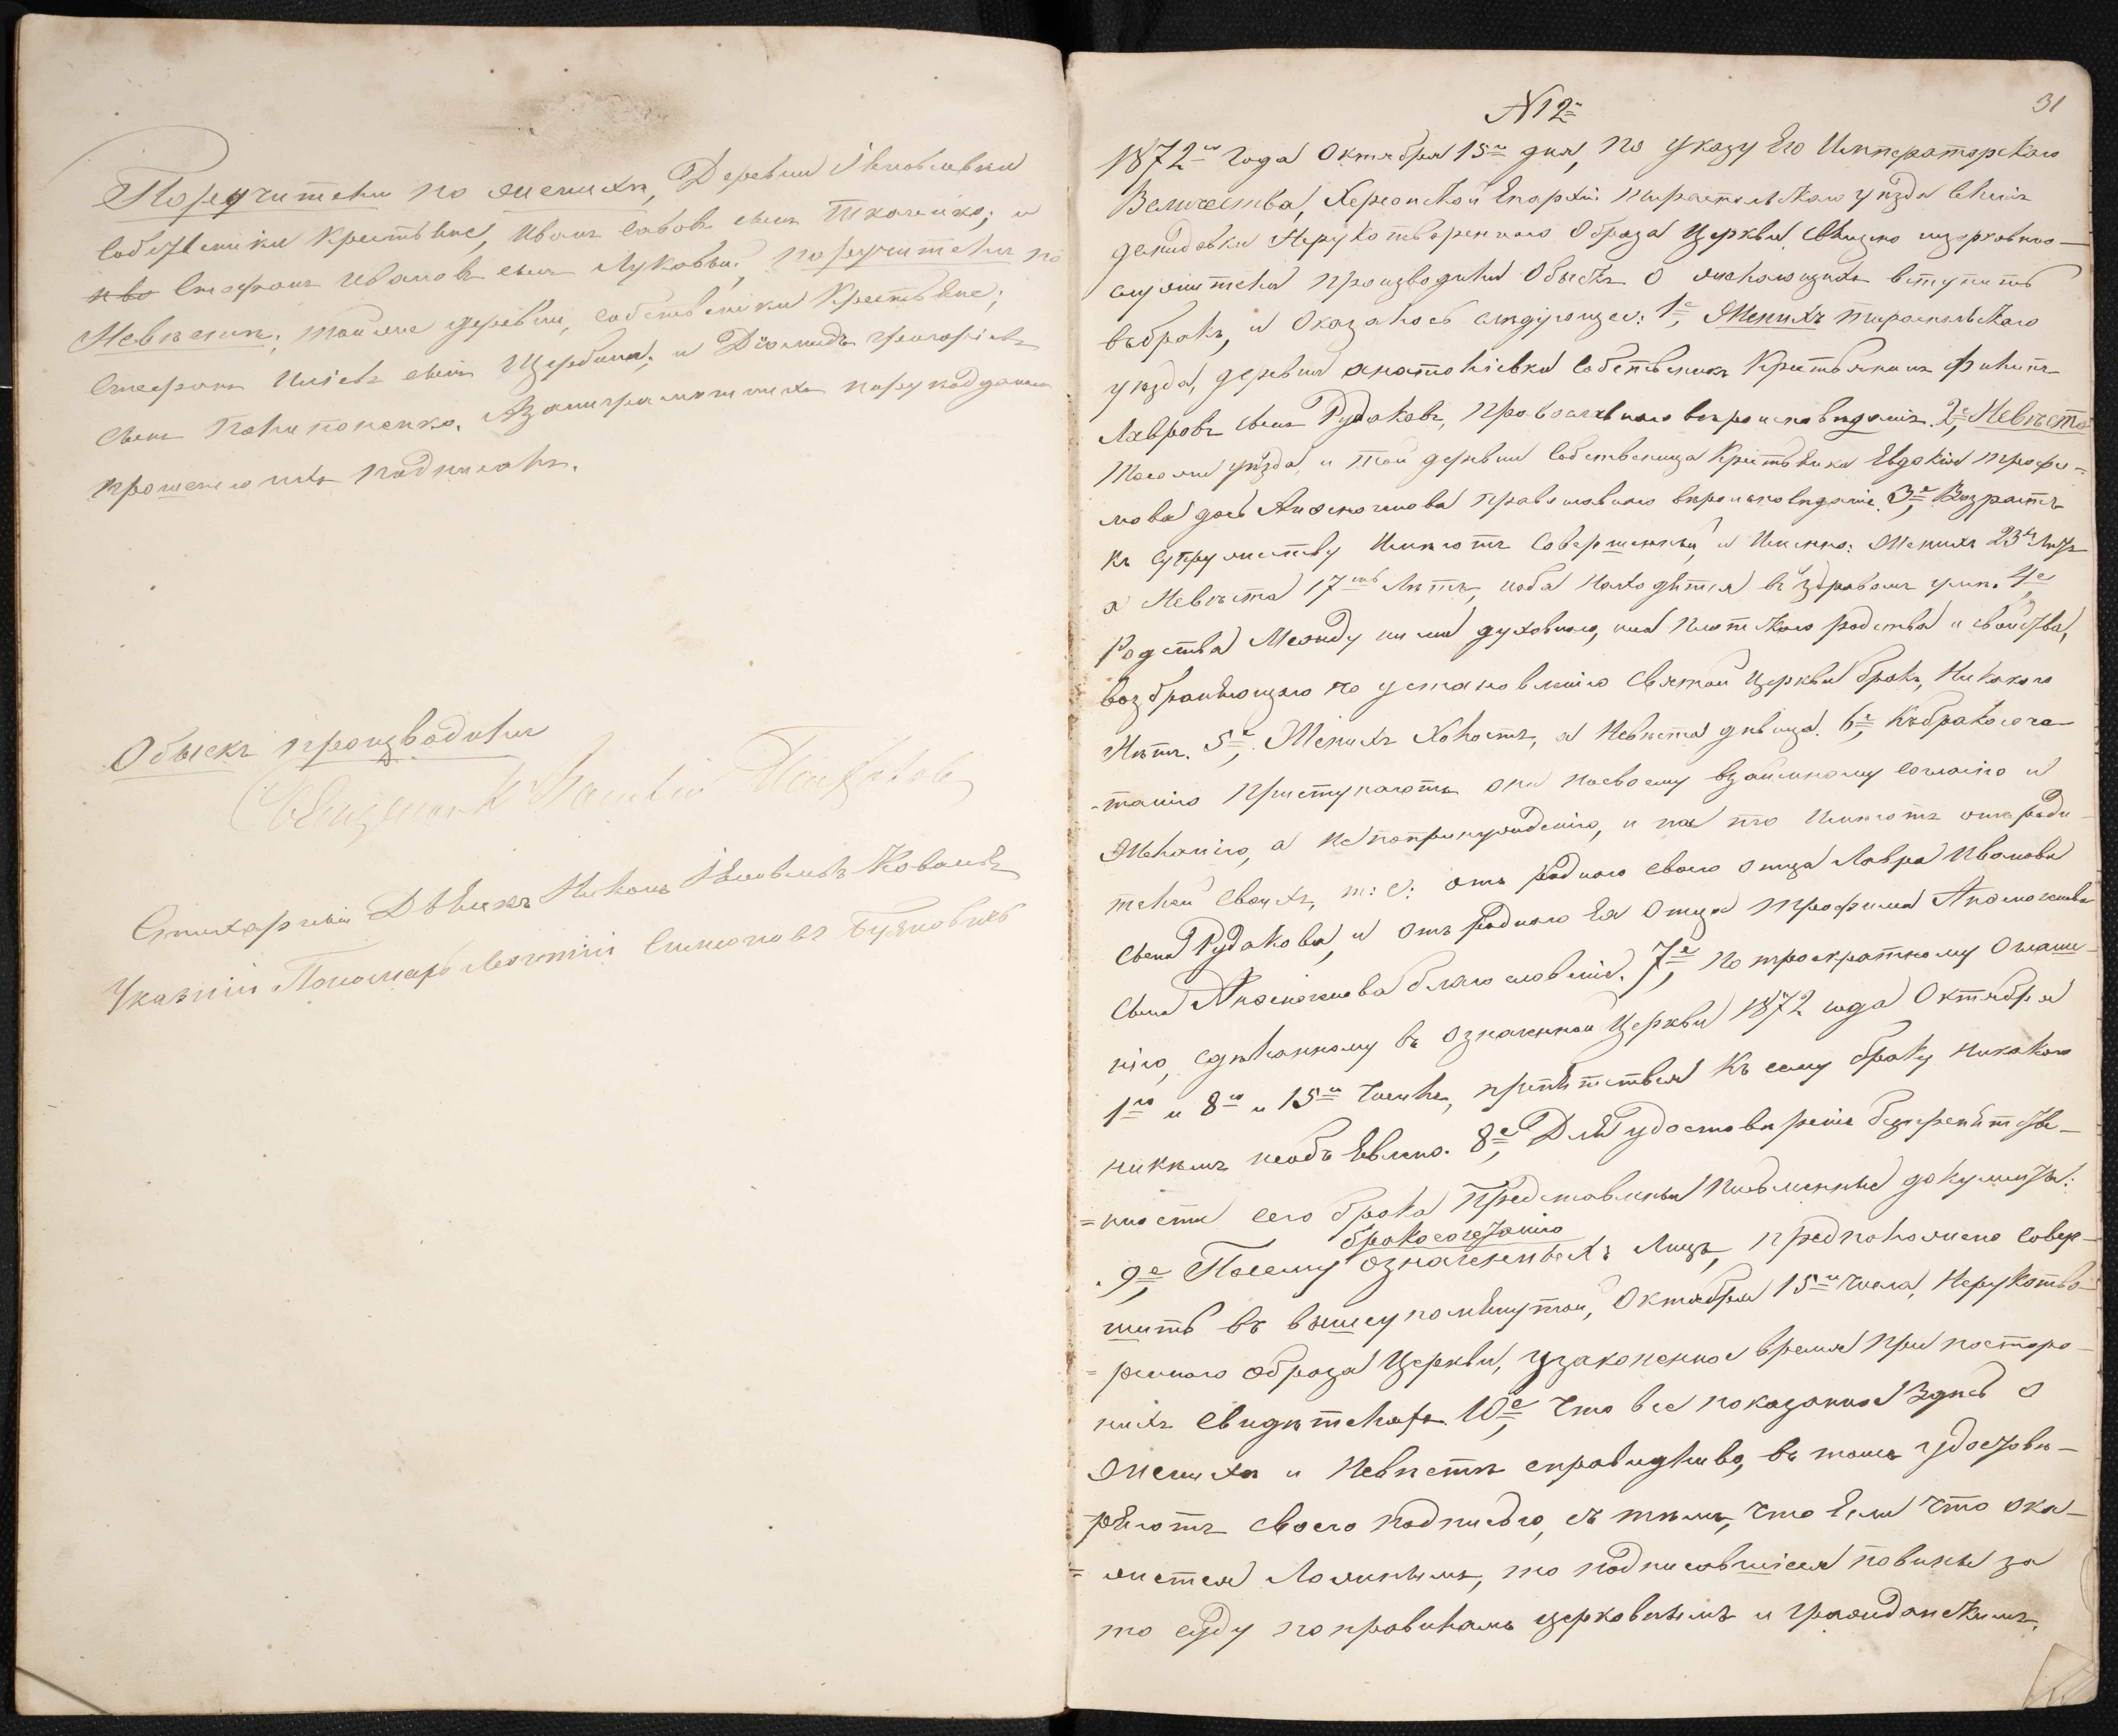 Поручители по женихѣ, Деревни Яковлевки
Собственики Крестьяне, Иванъ Савовъ сынъ Ткаченко; и
Стефанъ Ивановъ сынъ Луковъ; поручители по
Невѣстѣ; той же деревни, собственики Крестьяне;
Стефанъ сынъ Щербина; и Діомидъ Григоріевъ
сынъ Пилипоненко. А за неграмотныхъ по рукоданию
прошенію ихъ подписалъ.
Обыскъ производили
Священникъ
Стихарный Дьячекъ Никонъ Яковлевъ Коваль
Указный Пономарь Леонтій Симоновъ
31
N 12й
1872го Года Октября 15го дня, По указу Его Императорскаго
Величества, Херсонской Епархіи Тираспольскаго уѣзда
демидовки Нерукотвореннаго Образа Церкви, Священно церковно-
служители производили Обыскъ О желающихъ вступить
въ бракъ, и Оказалось слѣдующее: 1е, Женихъ тираспольскаго
уѣзда, деревни анатоліевки Собственикъ Крестьянинъ Филипъ
Лавровъ сынъ Рудаковъ, Православнаго вѣроисповѣданія. 2е, Невѣста
Того же уѣзда, и той деревни Собственица Крестьянка Евдокія трофи-
мова дочь православнаго вѣроисповѣданія. 3е, Возрастъ
къ супружеству Имѣютъ Совершенный, и Именно: Женихъ 23 Лѣтъ
а Невѣста 17ть Лѣтъ, и оба Находятся въ здравомъ умѣ. 4е,
Родства Между ними духовнаго, или Плотскаго родства и свойства,
возбраняющаго по установленію Святой Церкви бракъ, Никакого
Нѣтъ. 5е, Женихъ Холостъ, а Невѣста дѣвица. 6е, Къ бракосоче-
-танію Приступаютъ они по своему взаимному Согласію и
Желанію, а Не по принужденію, и на то Имѣютъ отъ роди-
телей Своихъ, т: е: отъ роднаго своего отца Лавра Иванова
сына Рудакова, и отъ роднаго Ея Отца Трофима
сына благословеніе. 7е, По троекратному Оглаше-
нію, Сдѣланному въ означенной Церкви 1872 года Октября
1го и 8го и 15го Числъ, препятствія Къ сему браку никакого
никѣмъ необъявлено. 8е, Для удостовѣренія безпрепятстве-
=нности сего брака Представлены письменные документы:
бракосочетанію
. 9е, Посему означенныхъ Лицъ, предположено Совер-
шить въ вышеупомянутой, Октября 15го числа, Нерукотво-
=реннаго образа Церкви, узаконенное время При посторо-
нихъ Свидѣтеляхъ. 10е, Что все показанное Здѣсь О
Женихѣ и Невѣстѣ справедливо, въ томъ удостовѣ-
ряютъ своею подписью, съ тѣмъ, что Если что ока-
=жется Ложнымъ, то подписавшіеся повины за
то суду по правиламъ церковнымъ и гражданскимъ.